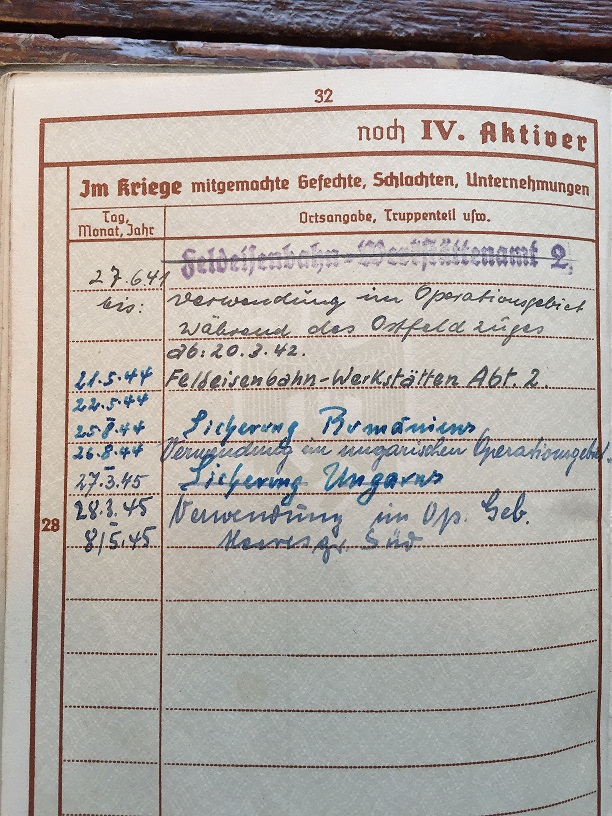 32
noch IV. Aktiver
Im Kriege mitgemachte Gefechte, Schlachten, Unternehmungen
Tag, Monat, Jahr
Ortsangabe, Truppenteil usw.
Feldeisenbahn-Werkstättenamt 2.
27.6.41
bis: Verwendung im Operationsgebiet
während des Ostfeldzuges
ab: 20.3.42.
21.5.44 Feldeisenbahn-Werkstätten Abt. 2.
22.5.44
-
25.8.44 Sicherung Rumäniens
26.8.44 Verwendung im ungarischen Operationsgebiet.
-
27.3.45 Sicherung Ungarns
28.3.45 Verwendung im Op. Geb.
-
8/5.45 Heeresgr. Süd
28